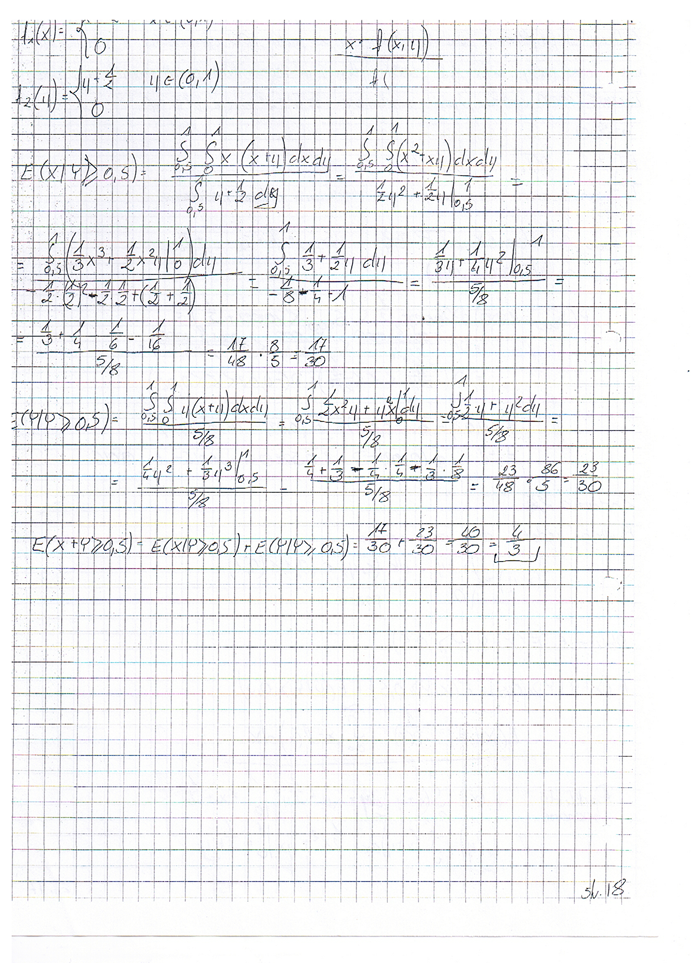 f₁(x) = { 0
x · f(x,y)
f₂(y) = { y + 1/2 y ∈ (0,1)
0
f(
E(X|Y ≥ 0,5) = ∫_{0,5}^{1} ∫_{0}^{1} x (x+y) dxdy / ∫_{0,5}^{1} y + 1/2 dy = ∫_{0,5}^{1} ∫_{0}^{1} (x²+xy) dxdy / 1/2 y² + 1/2 y |_{0,5}^{1} =
= ∫_{0,5}^{1} (1/3 x³ + 1/2 x² y |_{0}^{1}) dy / - 1/2 · (1/2)² - 1/2 · 1/2 + (1/2 + 1/2) = ∫_{0,5}^{1} 1/3 + 1/2 y dy / - 1/8 - 1/4 + 1 = 1/3 y + 1/4 y² |_{0,5}^{1} / 5/8 =
= 1/3 + 1/4 - 1/6 - 1/16 / 5/8 = 17/48 · 8/5 = 17/30
E(Y|Y ≥ 0,5) = ∫_{0,5}^{1} ∫_{0}^{1} y(x+y) dxdy / 5/8 = ∫_{0,5}^{1} 1/2 x² y + y² x |_{0}^{1} dy / 5/8 = ∫_{0,5}^{1} 1/2 y + y² dy / 5/8 =
= 1/4 y² + 1/3 y³ |_{0,5}^{1} / 5/8 = 1/4 + 1/3 - 1/4 · 1/4 - 1/3 · 1/8 / 5/8 = 23/48 · 86/5 = 23/30
E(X+Y ≥ 0,5) = E(X|Y ≥ 0,5) + E(Y|Y ≥ 0,5) = 17/30 + 23/30 = 40/30 = 4/3
str. 18